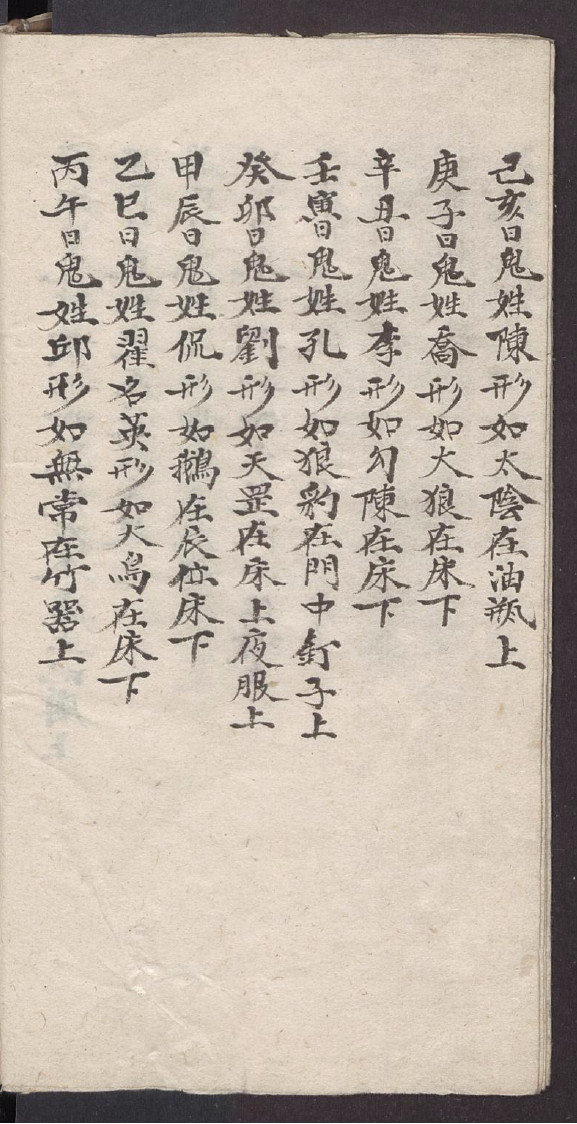 己亥日鬼姓陳形如太陰在油瓶上
庚子日鬼姓喬形如大狼在床下
辛丑日鬼姓李形如勾陳在床下
壬寅日鬼姓孔形如狼豹在門中釘子上
癸卯日鬼姓劉形如天罡在床上夜服上
甲辰日鬼姓侃形如鵝在床下
乙巳日鬼姓翟名英形如大鳥在床下
丙午日鬼姓邱形如無常在竹器上